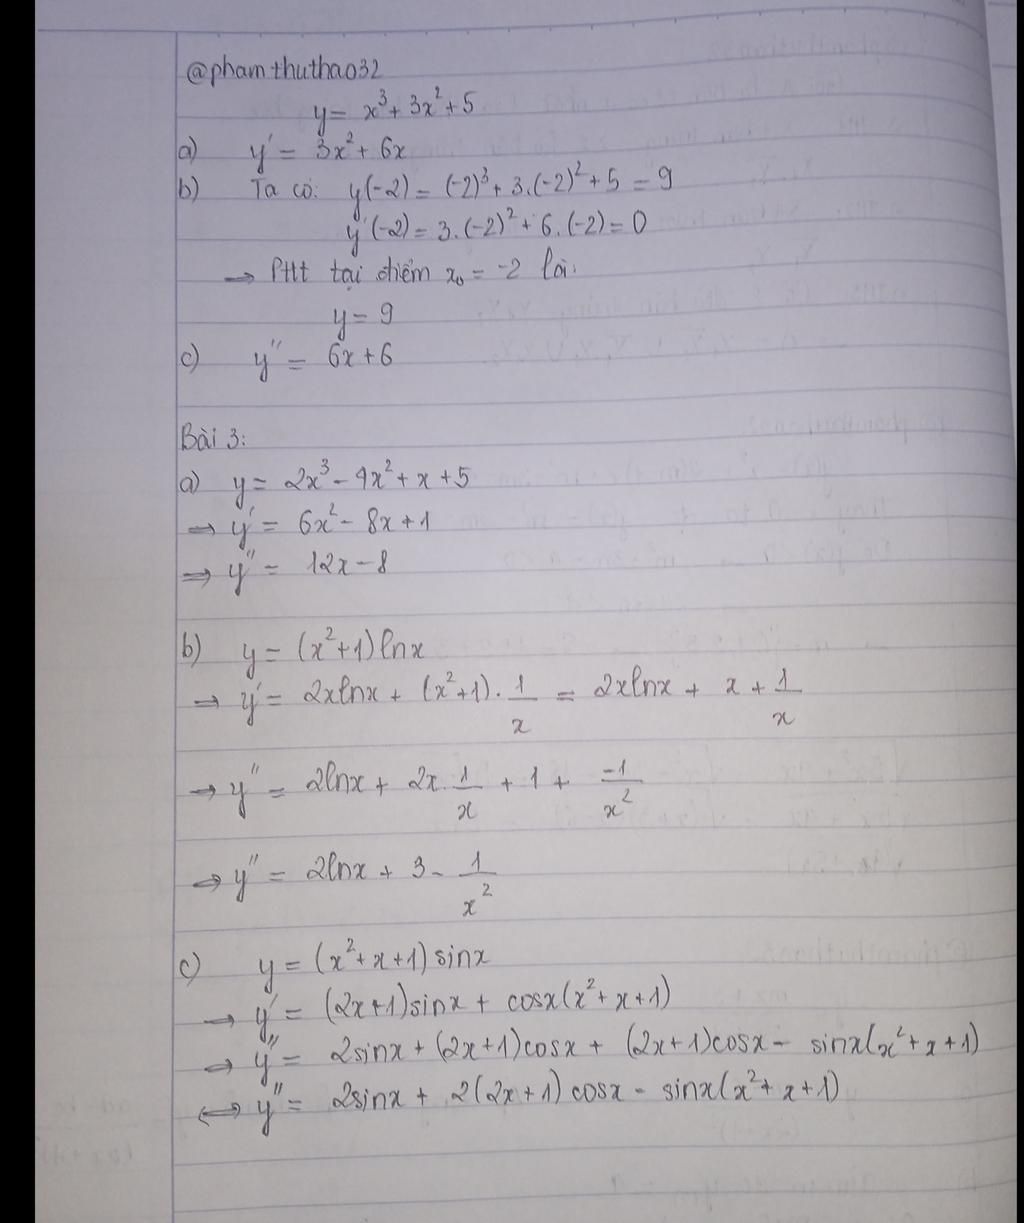 @phamthuthao32
y = x³ + 3x² + 5
a) y' = 3x² + 6x
b) Ta có: y(-2) = (-2)³ + 3.(-2)² + 5 = 9
y'(-2) = 3.(-2)² + 6.(-2) = 0
→ Pttt tại điểm x₀ = -2 là:
y = 9
c) y'' = 6x + 6
Bài 3:
a) y = 2x³ - 4x² + x + 5
→ y' = 6x² - 8x + 1
⇒ y'' = 12x - 8
b) y = (x² + 1) lnx
→ y' = 2xlnx + (x² + 1) . 1/x = 2xlnx + x + 1/x
→ y'' = 2lnx + 2x . 1/x + 1 + -1/x²
⇒ y'' = 2lnx + 3 - 1/x²
c) y = (x² + x + 1) sinx
→ y' = (2x + 1) sinx + cosx(x² + x + 1)
⇒ y'' = 2sinx + (2x + 1) cosx + (2x + 1) cosx - sinx(x² + x + 1)
⇔ y'' = 2sinx + 2(2x + 1) cosx - sinx(x² + x + 1)